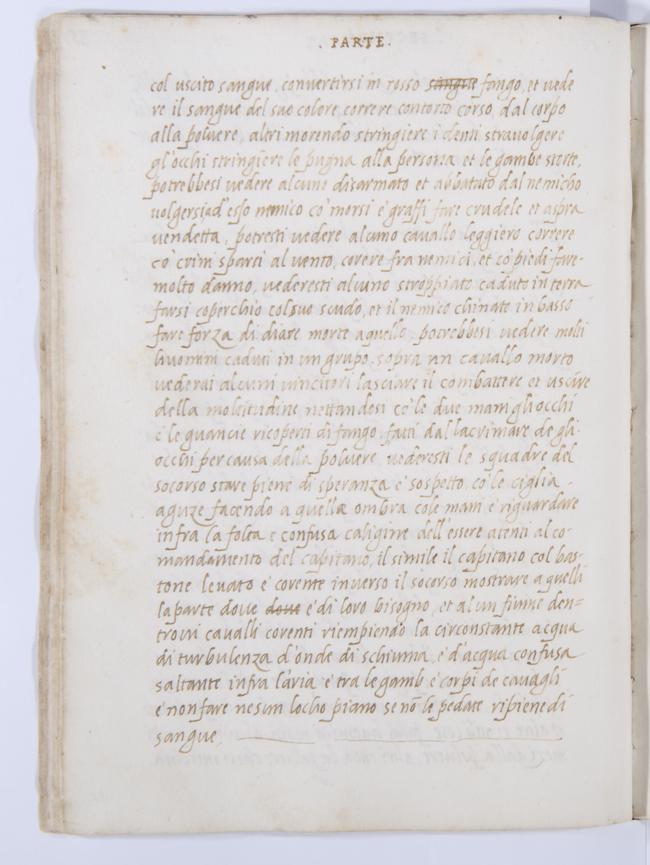 . PARTE .
col uscito sangue, convertirsi in rosso sangue fango, et vede
re il sangue del suo colore, correre contorto corso, dal corpo
alla poluere, altri morendo stringiere i denti stravolgere
gl'occhi stringiere le pugna alla persona et le gambe storte,
potrebbesi vedere alcuno disarmato et abbatuto dal nemicho
volgersi ad' esso nimico co' morsi e' graffi fare crudele et aspra
vendetta, potresti vedere alcuno cavallo leggiero correre
co' crini sparsi al vento, corere fra nemici, et co' piedi fare
molto danno, vederesti alcuno stroppiato caduto in terra
farsi coperchio col suo scudo, et il nemico chinato in basso
fare forza di dare morte a quello, potrebbesi vedere molti
huomini caduti in un gruppo, sopra un cavallo morto
vederai alcuni vincitori lasciare il combattere et uscire
della moltitudine nettandosi co' le due mani gli occhi
e le guancie ricoperti di fango, fatti dal lacrimare de gli
occhi per causa della poluere, vederesti le squadre del
socorso stare piene di speranza e' sospetto, co' le ciglia
aguze facendo a quelle ombra cole mani e' riguardare
infra la folta e confusa caligine dell' essere atenti al co-
mandamento del capitano, il simile il capitano col bas-
tone levato e' corente inverso il socorso mostrare a quelli
la parte dove dove e' di loro bisogno, et alun fiume den-
trovi cavalli corenti riempiendo la circonstante acqua
di turbulenza d'onde di schiuma, e' d'acqua confusa
saltante infra l'aria e' tra le gamb e' corpi de cavagli
e' non fare nesun locho piano se nō le pedate ripiene di
sangue,